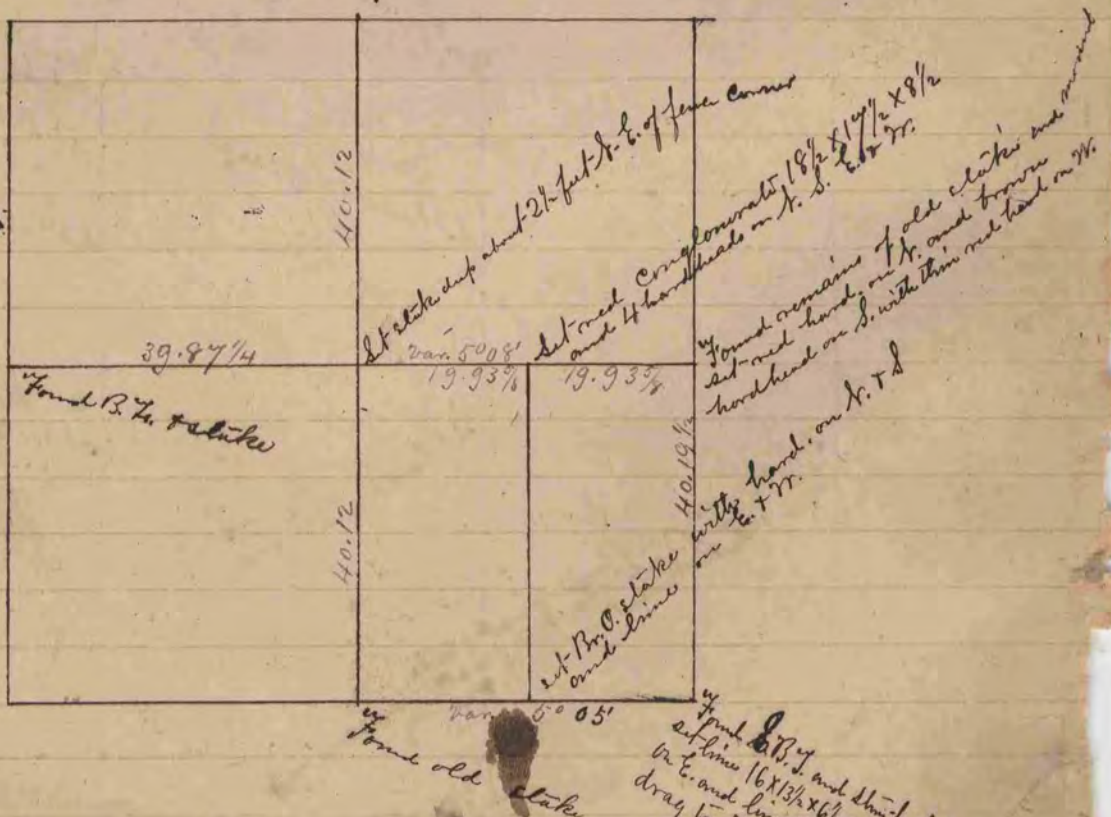 40.12
Set stake dup about 2½ feet N. E. of fence corner
Set red Conglomerate 18½ X 14½ X 8½
and 4 hardheads on N. S. E. & W.
Found remains of old stake and
set red hard. on N. and brown
hardhead on S. with thin red hard on W.
39.87¼
Var. 5° 08'
19.93⅝
19.93⅝
Found B. Tr. & stake
40.12
40.19½
set Br. O. stake with hard. on N. & S
and lime on E. & W.
Var. 5° 05'
Found old stake
Found B. J. and
set lime 16X13½X6½
on E. and
drag